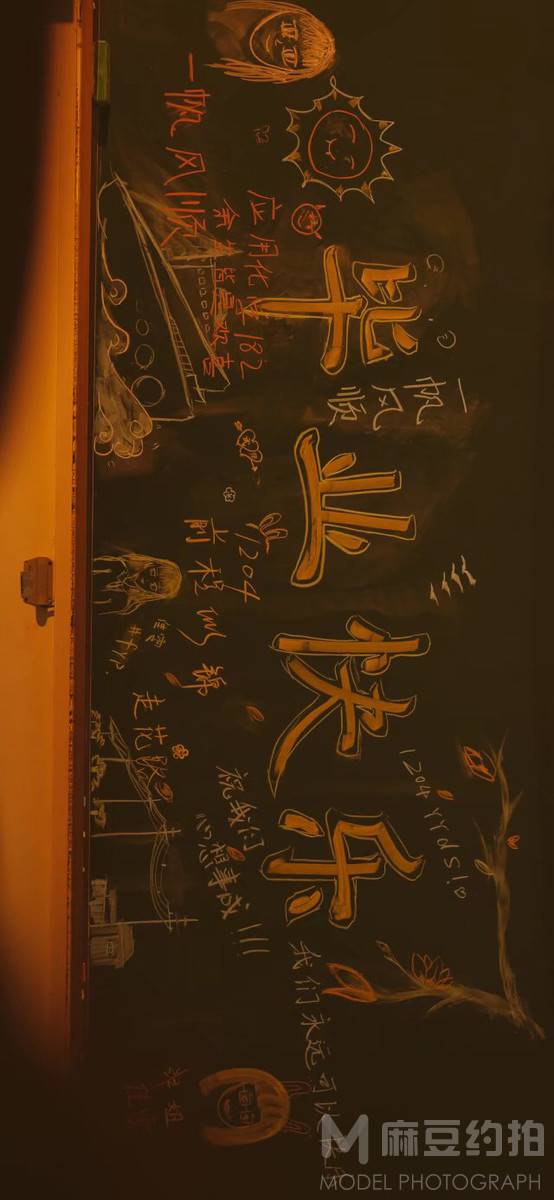 毕业快乐
一帆风顺
一帆风顺
应用化学182
余生皆是欢喜
1204
前程似锦
走花路
祝我们
心想事成!!!
1204 YYDS!
我们永远可以
麻豆约拍
MODEL PHOTOGRAPH